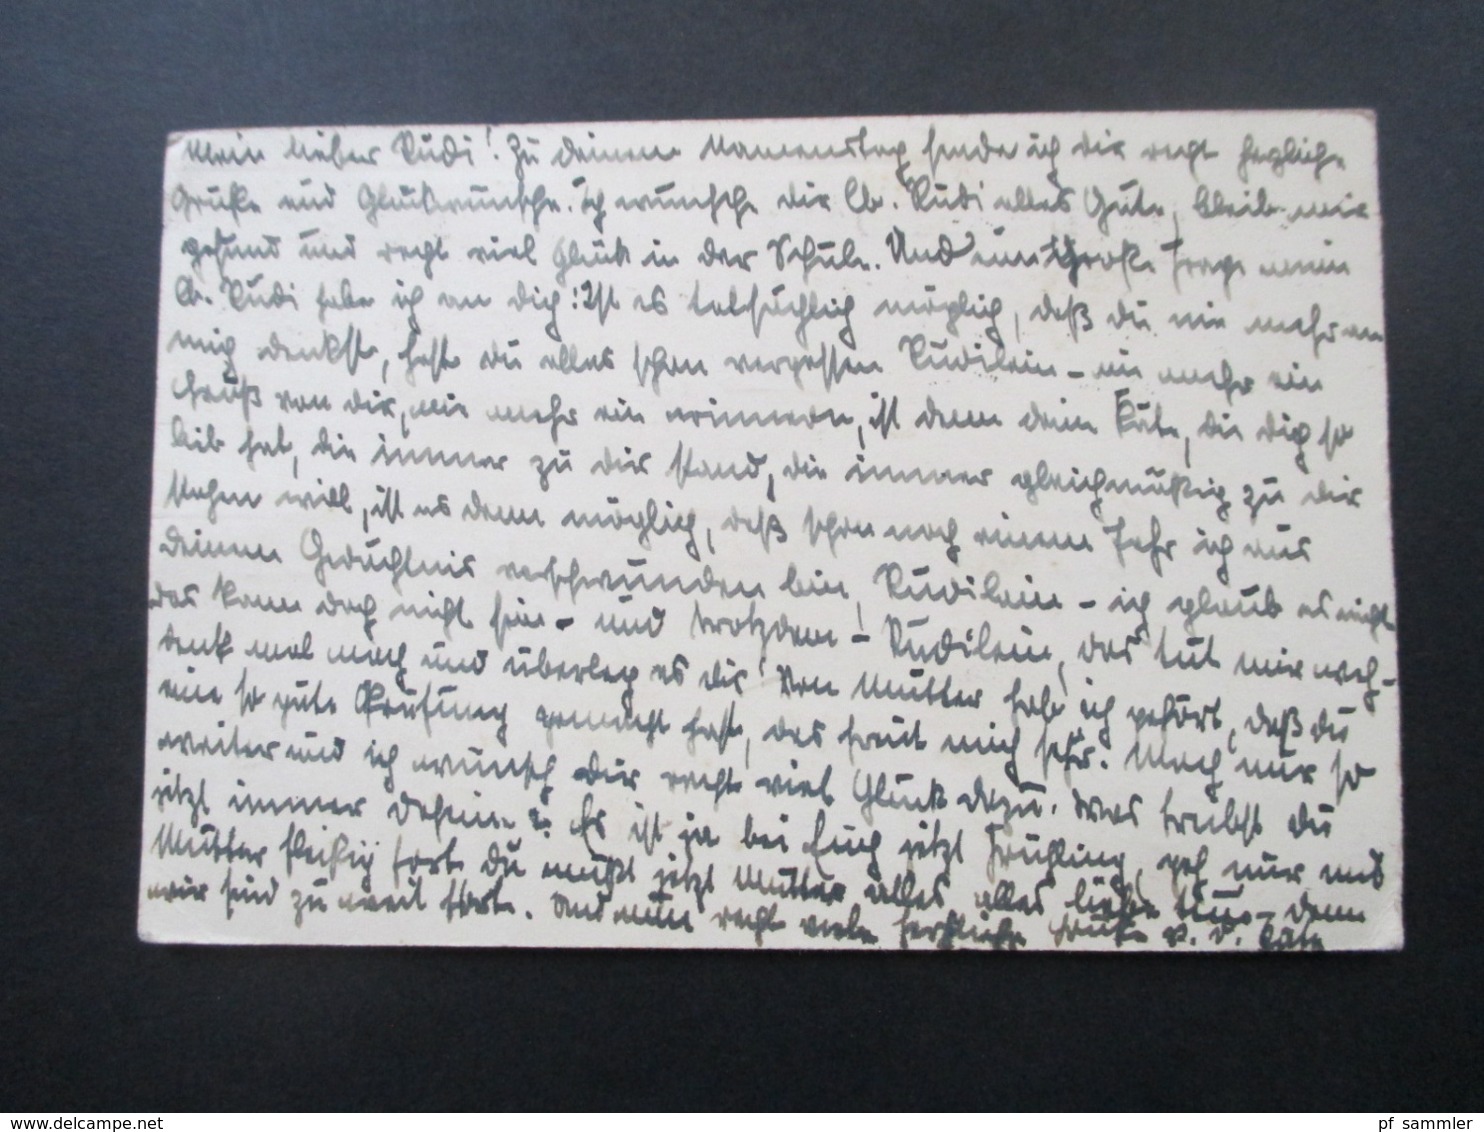 Mein lieber Rudi! Zu deinem Namenstag sende ich dir recht herzliche
Grüße und Glückwünsche. Ich wünsche dir lb. Rudi alles Gute, bleib mir
gesund und recht viel Glück in der Schule. Und eine große Frage mein
lb. Rudi habe ich an dich: Ist es tatsächlich möglich, daß du nie mehr an
mich denkst, hast du alles schon vergessen Rudilein – nie mehr ein
Gruß von dir, nie mehr ein erinnern, ist denn dein Käte, die dich so
lieb hat, die immer zu dir stand, die immer gleichmäßig zu dir
stehen will, ist es denn möglich, daß schon nach einem Jahr ich aus
deinem Gedächtnis verschwunden bin, Rudilein – ich glaub es nicht
das kann doch nicht sein – und trotzdem – Rudilein, das tut mir weh –
denk mal nach und überleg es dir! Von Mutter hab ich gehört, daß du
eine so gute Prüfung gemacht hast, das freut mich sehr. Mach nur so
weiter und ich wünsch dir recht viel Glück dazu. Was treibst du
jetzt immer daheim? Es ist ja bei Euch jetzt Frühling, geh nur mit
Mutter fleißig fort. Du mußt jetzt Mutter alles alles liebe tun – denn
wir sind zu weit fort. Und nun recht viele herzliche Grüße v. d. Käte
pf_sammler
www.delcampe.net